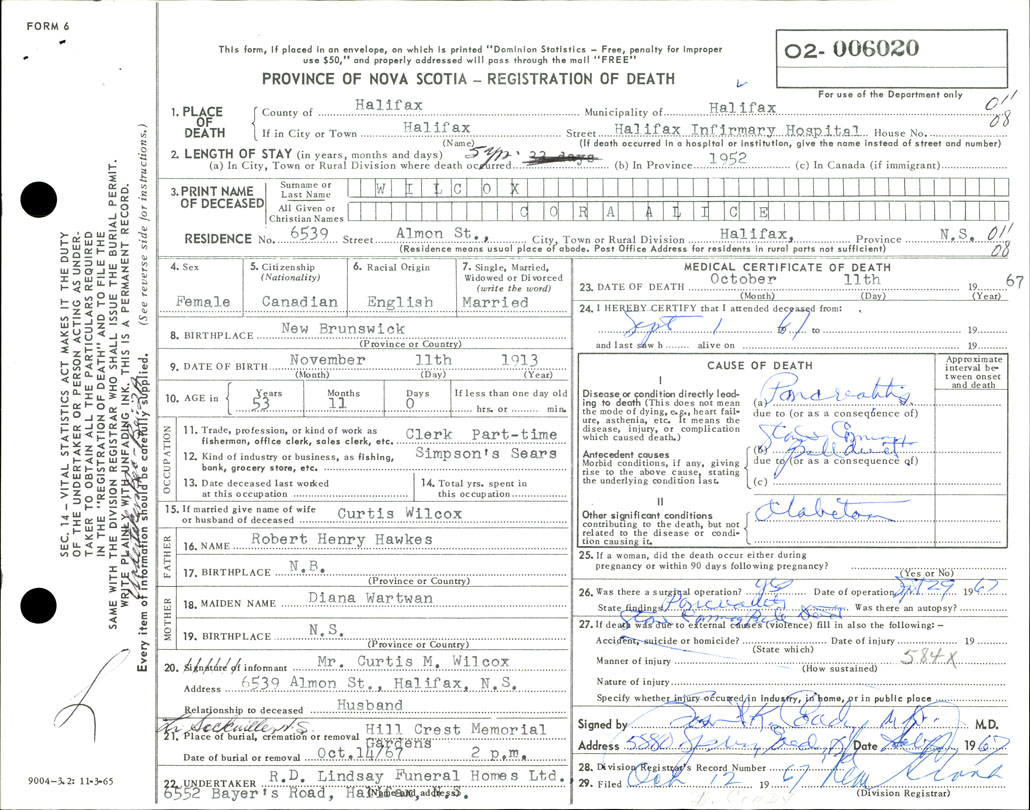 FORM 6
This form, if placed in an envelope, on which is printed "Dominion Statistics – Free, penalty for improper
use $50," and properly addressed will pass through the mail "FREE"
PROVINCE OF NOVA SCOTIA – REGISTRATION OF DEATH
02- 006020
For use of the Department only
1. PLACE OF DEATH
County of Halifax Municipality of Halifax 011
If in City or Town Halifax Street Halifax Infirmary Hospital House No. 08
(Name) (If death occurred in a hospital or institution, give the name instead of street and number)
2. LENGTH OF STAY (in years, months and days)
(a) In City, Town or Rural Division where death occurred 5 yrs. (b) In Province 1952 (c) In Canada (if immigrant)
3. PRINT NAME OF DECEASED
Surname or Last Name WILCOX
All Given or Christian Names CORA ALICE
RESIDENCE No. 6539 Street Almon St., City, Town or Rural Division Halifax, Province N.S. 011
(Residence means usual place of abode. Post Office Address for residents in rural parts not sufficient) 08
4. Sex
Female
5. Citizenship (Nationality)
Canadian
6. Racial Origin
English
7. Single, Married, Widowed or Divorced (write the word)
Married
8. BIRTHPLACE New Brunswick
(Province or Country)
9. DATE OF BIRTH November 11th 1913
(Month) (Day) (Year)
10. AGE in Years Months Days If less than one day old
53 11 0 hrs. or min.
OCCUPATION
11. Trade, profession, or kind of work as
fisherman, office clerk, sales clerk, etc. Clerk Part-time
12. Kind of industry or business, as fishing,
bank, grocery store, etc. Simpson's Sears
13. Date deceased last worked
at this occupation
14. Total yrs. spent in
this occupation
15. If married give name of wife
or husband of deceased Curtis Wilcox
FATHER
16. NAME Robert Henry Hawkes
17. BIRTHPLACE N.B.
(Province or Country)
MOTHER
18. MAIDEN NAME Diana Wartwan
19. BIRTHPLACE N.S.
(Province or Country)
20. Signature of informant Mr. Curtis M. Wilcox
Address 6539 Almon St., Halifax, N.S.
Relationship to deceased Husband
Sackville N.S.
21. Place of burial, cremation or removal Hill Crest Memorial
Gardens
Date of burial or removal Oct.14/67 2 p.m.
22. UNDERTAKER R.D. Lindsay Funeral Homes Ltd.
6552 Bayer's Road, Halifax, N.S.
(Name and address)
MEDICAL CERTIFICATE OF DEATH
23. DATE OF DEATH October 11th 19 67
(Month) (Day) (Year)
24. I HEREBY CERTIFY that I attended deceased from:
Sept 1 67 to 19
and last saw h alive on 19
CAUSE OF DEATH
Approximate interval between onset and death
I
Disease or condition directly leading to death (This does not mean
the mode of dying, e.g., heart failure, asthenia, etc. It means the
disease, injury, or complication
which caused death.)
(a) Pancreatitis
due to (or as a consequence of)
Antecedent causes
Morbid conditions, if any, giving
rise to the above cause, stating
the underlying condition last.
(b) Stone Common
due to (or as a consequence of)
(c)
II
Other significant conditions
contributing to the death, but not
related to the disease or condition causing it.
25. If a woman, did the death occur either during
pregnancy or within 90 days following pregnancy?
(Yes or No)
26. Was there a surgical operation? yes Date of operation Sept 29 19 67
State findings Pancreatitis Was there an autopsy?
Stone Common Bile Duct
27. If death was due to external causes (violence) fill in also the following: –
Accident, suicide or homicide? Date of injury 19
(State which)
Manner of injury 584X
(How sustained)
Nature of injury
Specify whether injury occurred in industry, in home, or in public place
Signed by M.D.
Address 5880 Spring Garden Rd Date 19 67
28. Division Registrar's Record Number
29. Filed Oct 12 67
(Division Registrar)
SEC. 14 – VITAL STATISTICS ACT MAKES IT THE DUTY
OF THE UNDERTAKER OR PERSON ACTING AS UNDERTAKER TO OBTAIN ALL THE PARTICULARS REQUIRED
IN THE "REGISTRATION OF DEATH" AND TO FILE THE
SAME WITH THE DIVISION REGISTRAR WHO SHALL ISSUE THE BURIAL PERMIT.
WRITE PLAINLY WITH UNFADING INK. THIS IS A PERMANENT RECORD.
Every item of information should be carefully supplied. (See reverse side for instructions.)
9004-3.2: 11-3-65